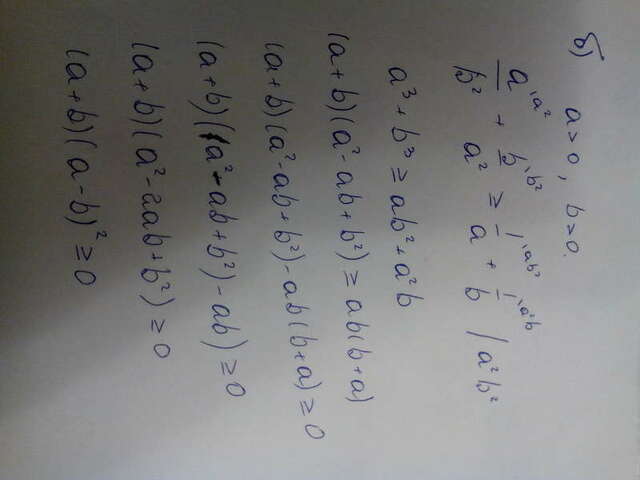 б) a>0, b>0.
a/b² ^{\a²} + b/a² ^{\b²} ≥ 1/a ^{\ab²} + 1/b ^{\a²b} | a²b²
a³ + b³ ≥ ab² + a²b
(a+b)(a² - ab + b²) ≥ ab(b+a)
(a+b)(a² - ab + b²) - ab(b+a) ≥ 0
(a+b)((a² - ab + b²) - ab) ≥ 0
(a+b)(a² - 2ab + b²) ≥ 0
(a+b)(a-b)² ≥ 0